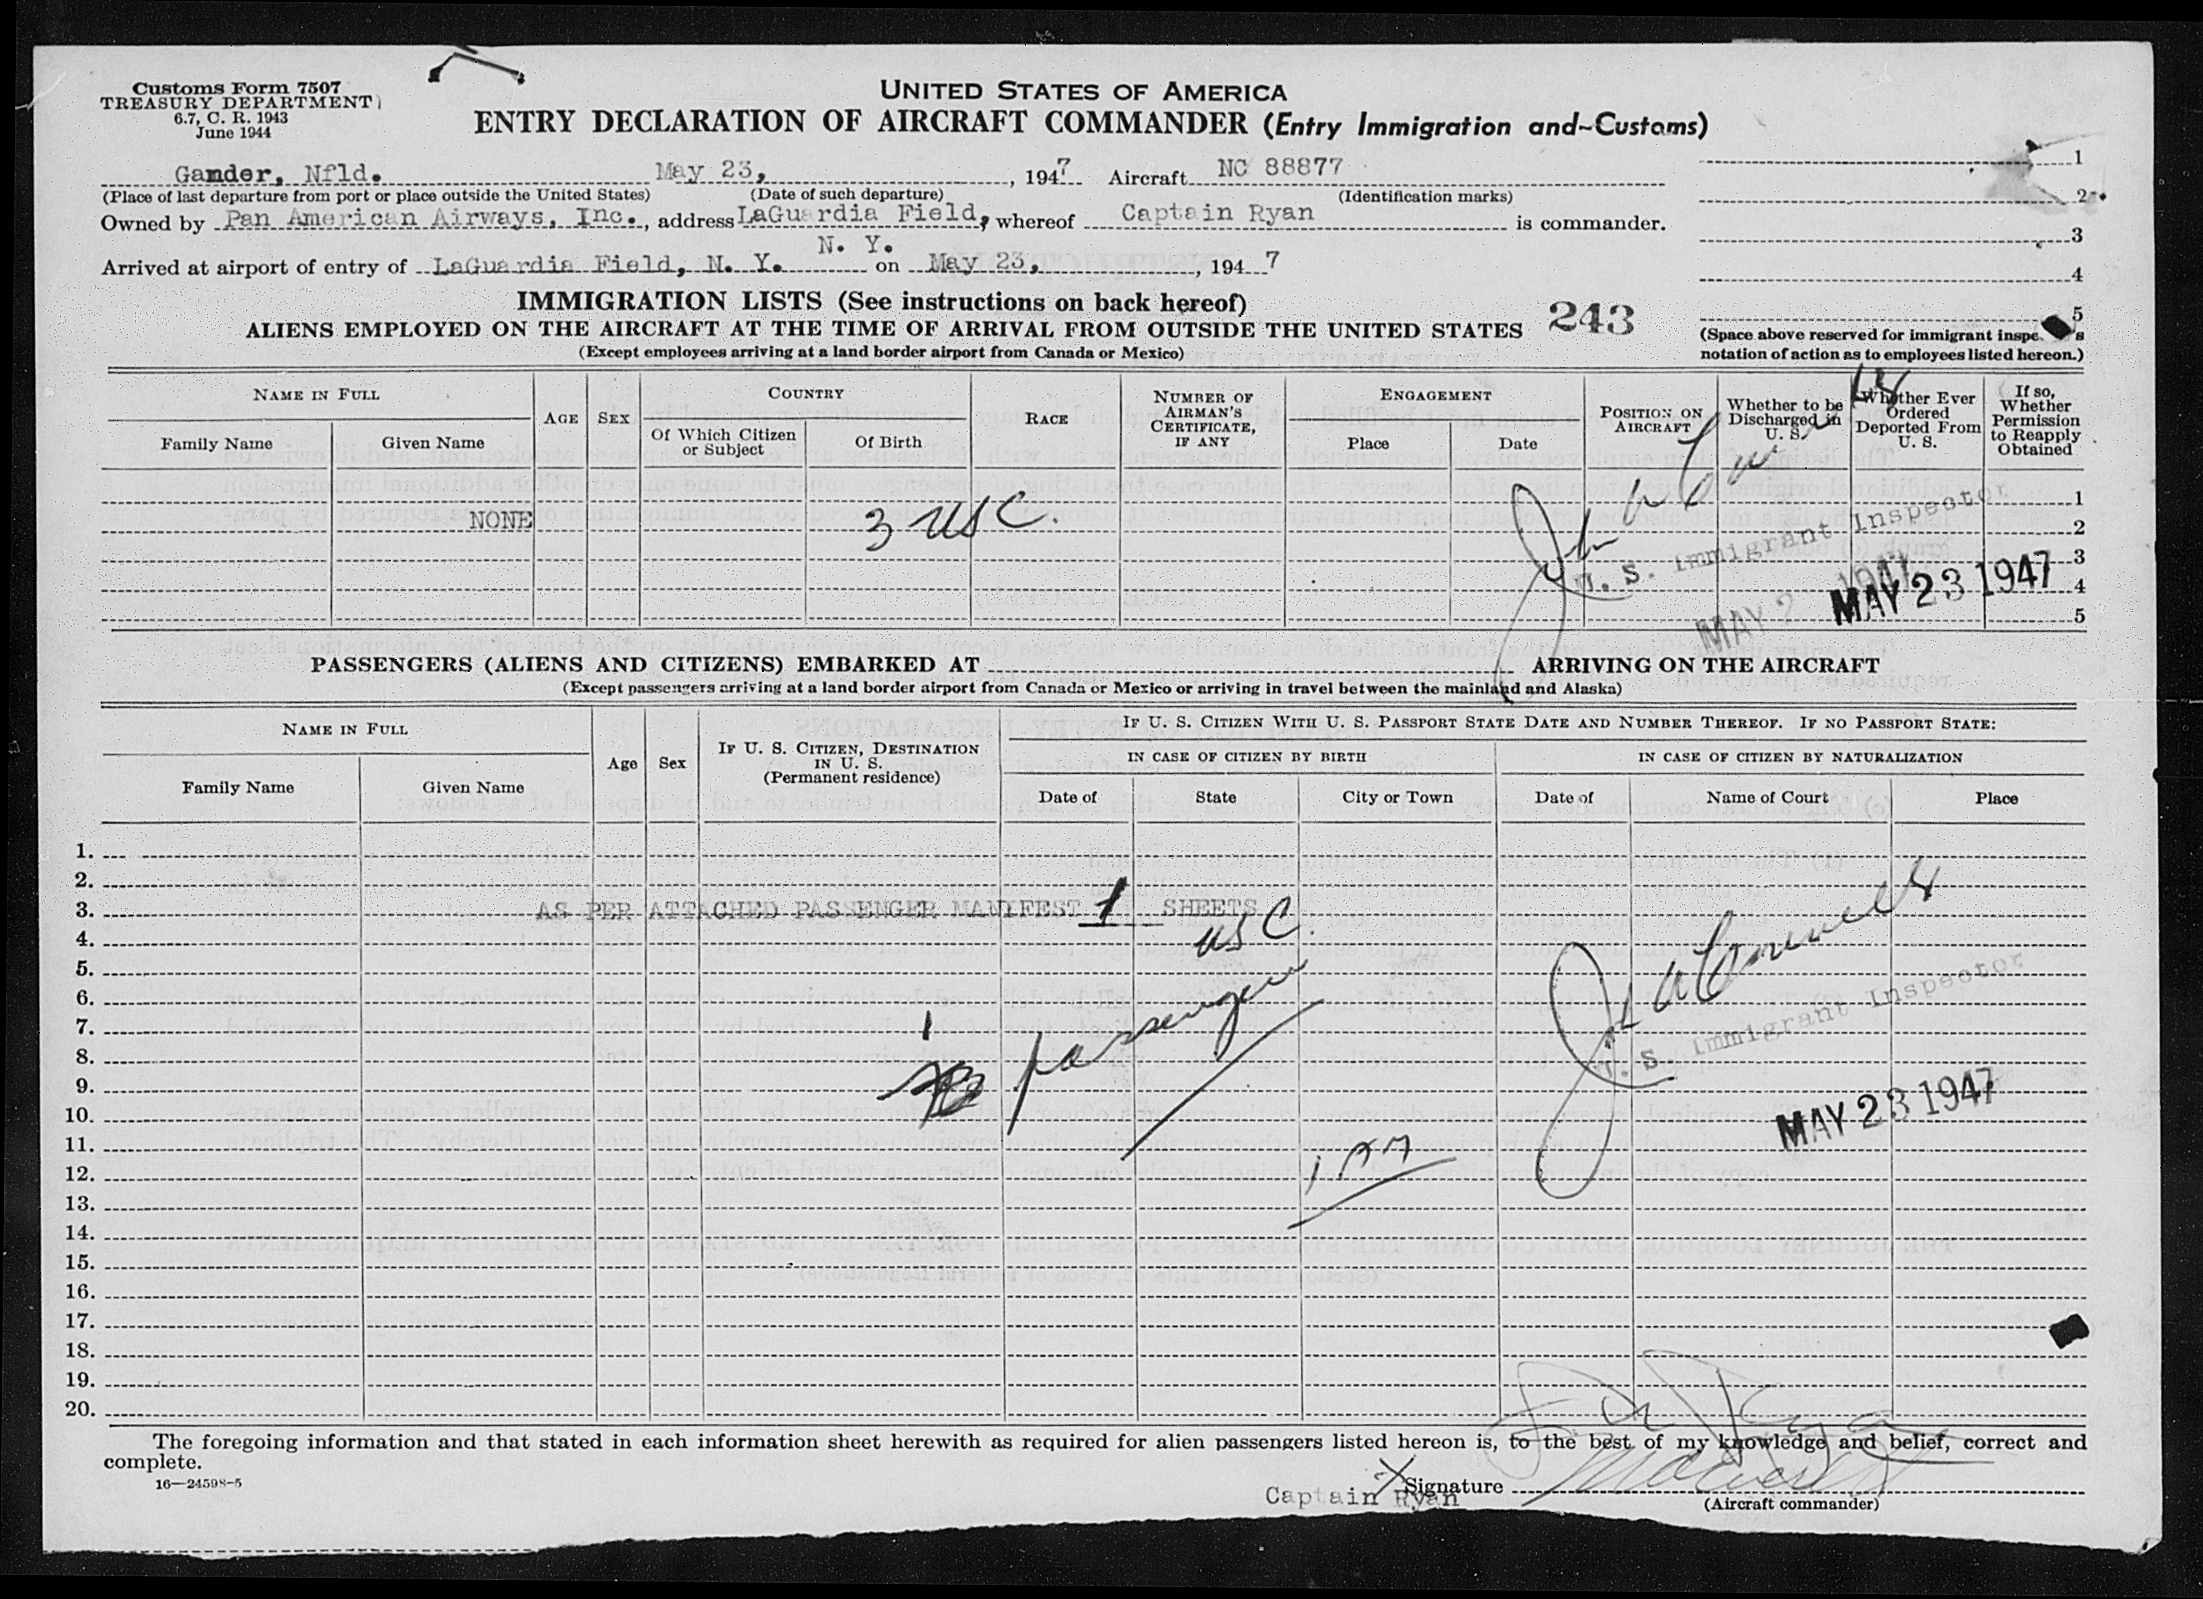 Customs Form 7507
TREASURY DEPARTMENT
6.7, C. R. 1943
June 1944
UNITED STATES OF AMERICA
ENTRY DECLARATION OF AIRCRAFT COMMANDER (Entry Immigration and-Customs)
Gander, Nfld. May 23, 1947 Aircraft NC 88877
(Place of last departure from port or place outside the United States) (Date of such departure) (Identification marks)
Owned by Pan American Airways, Inc., address LaGuardia Field, whereof Captain Ryan is commander.
N. Y.
Arrived at airport of entry of LaGuardia Field, N. Y. on May 23, 1947
1
2
3
4
5
(Space above reserved for immigrant inspe s
notation of action as to employees listed hereon.)
IMMIGRATION LISTS (See instructions on back hereof)
243
ALIENS EMPLOYED ON THE AIRCRAFT AT THE TIME OF ARRIVAL FROM OUTSIDE THE UNITED STATES
(Except employees arriving at a land border airport from Canada or Mexico)
NAME IN FULL
Family Name
Given Name
AGE
SEX
COUNTRY
Of Which Citizen
or Subject
Of Birth
RACE
NUMBER OF
AIRMAN'S
CERTIFICATE,
IF ANY
ENGAGEMENT
Place
Date
POSITION ON
AIRCRAFT
Whether to be
Discharged in
U. S.
Whether Ever
Ordered
Deported From
U. S.
If so,
Whether
Permission
to Reapply
Obtained
1
NONE 3 USC. 2
3
4
5
U. S. Immigrant Inspector
MAY 2 1947
MAY 23 1947
PASSENGERS (ALIENS AND CITIZENS) EMBARKED AT ARRIVING ON THE AIRCRAFT
(Except passengers arriving at a land border airport from Canada or Mexico or arriving in travel between the mainland and Alaska)
NAME IN FULL
Family Name
Given Name
Age
Sex
IF U. S. CITIZEN, DESTINATION
IN U. S.
(Permanent residence)
IF U. S. CITIZEN WITH U. S. PASSPORT STATE DATE AND NUMBER THEREOF. IF NO PASSPORT STATE:
IN CASE OF CITIZEN BY BIRTH
Date of
State
City or Town
IN CASE OF CITIZEN BY NATURALIZATION
Date of
Name of Court
Place
1.
2.
3. AS PER ATTACHED PASSENGER MANIFEST 1 SHEETS
4. USC.
5.
6.
7. 1
8. passenger
9.
10.
11.
12.
13.
14.
15.
16.
17.
18.
19.
20.
U. S. Immigrant Inspector
MAY 23 1947
The foregoing information and that stated in each information sheet herewith as required for alien passengers listed hereon is, to the best of my knowledge and belief, correct and
complete.
16—24598-5
X Signature
Captain Ryan
(Aircraft commander)